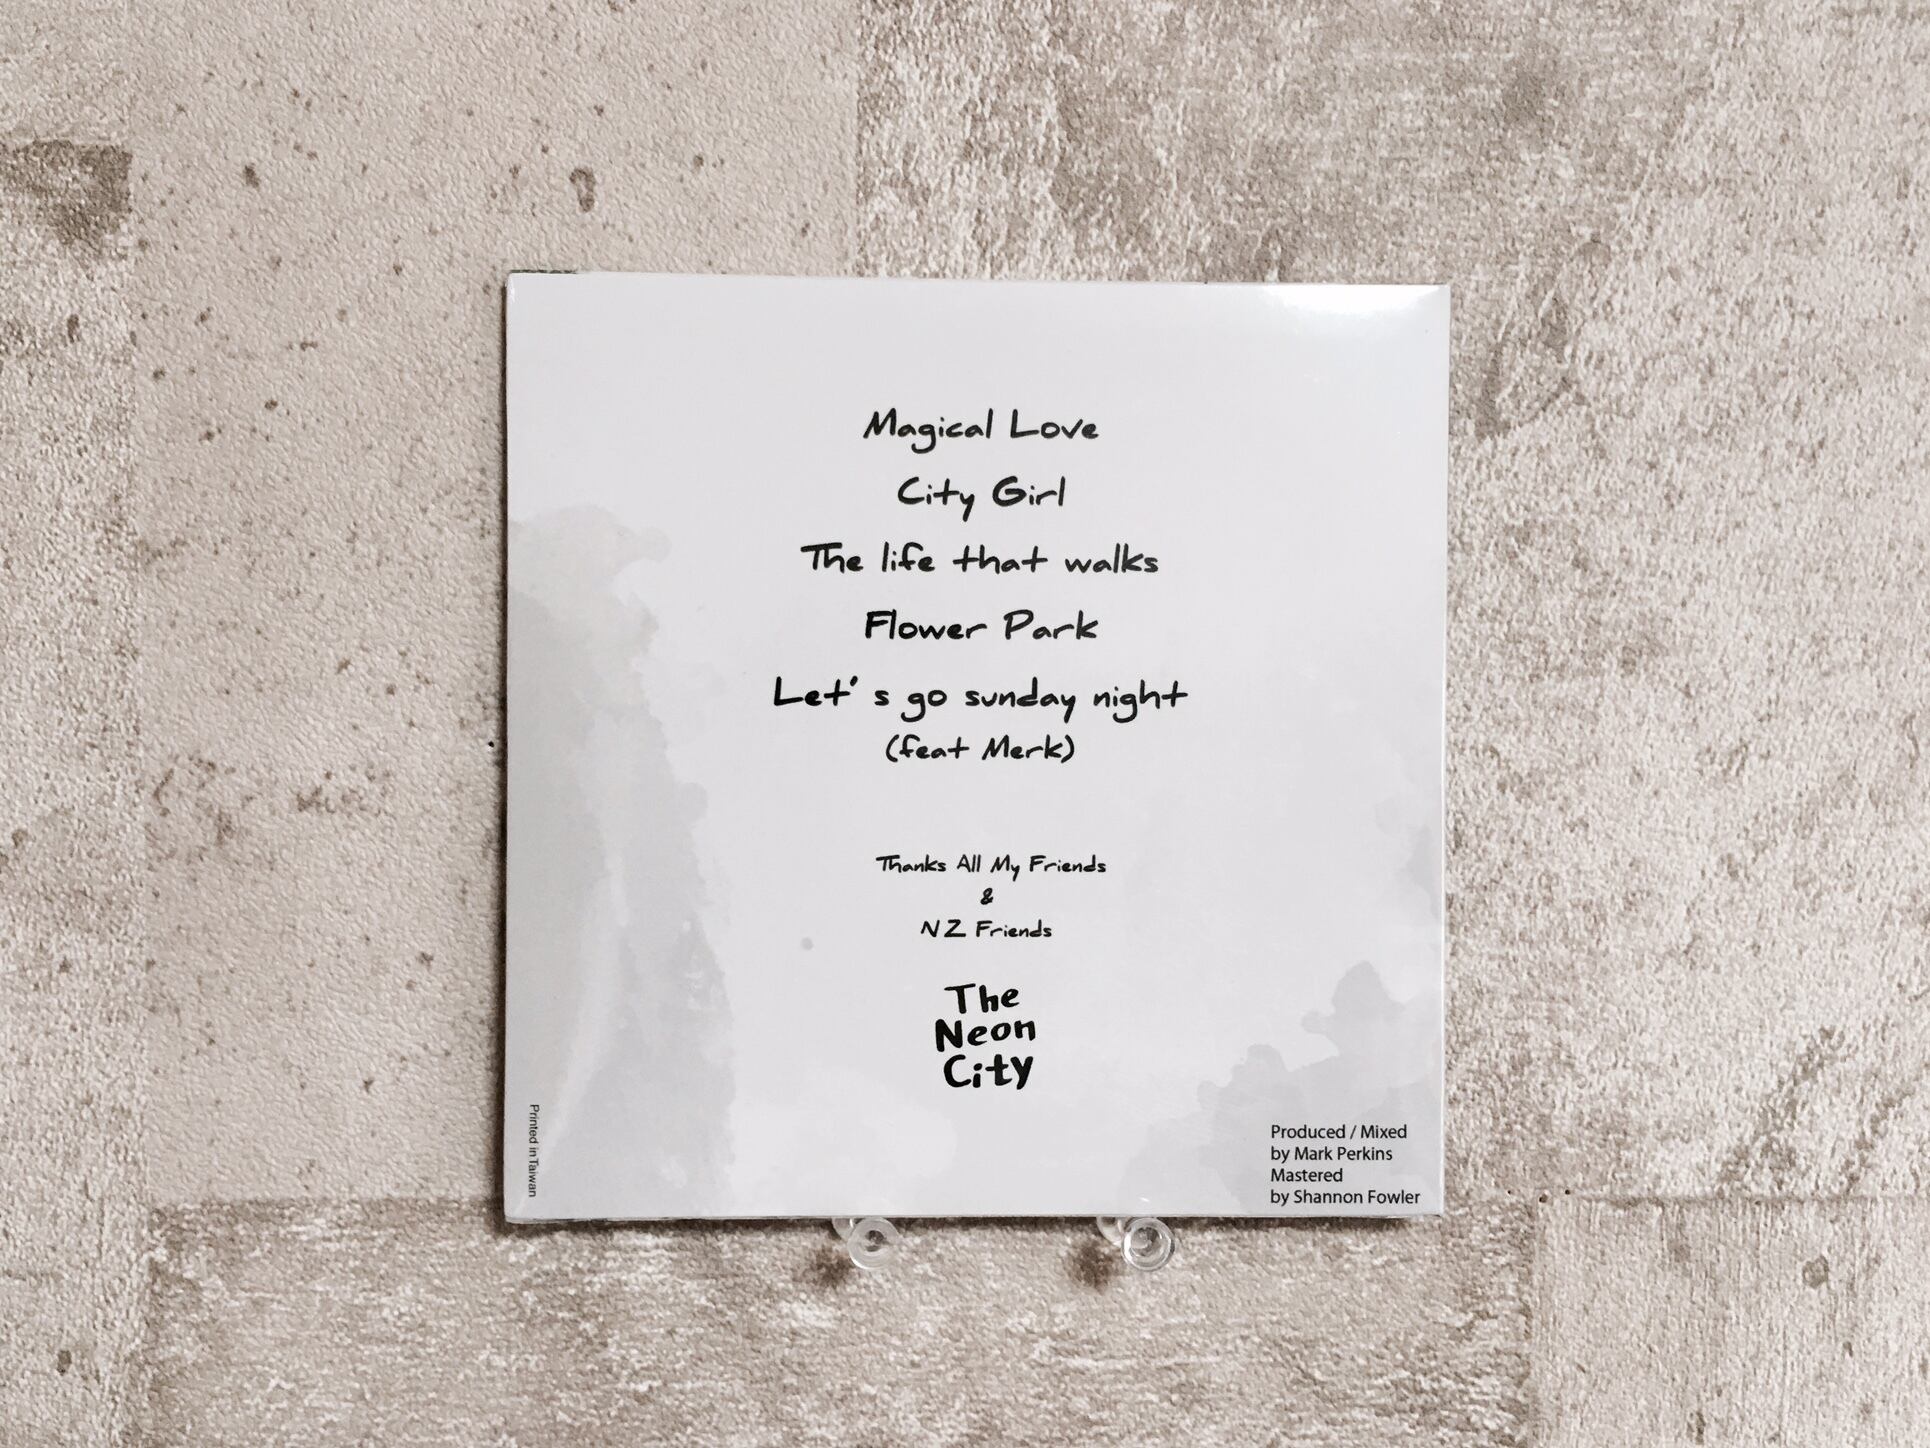 Magical Love
City Girl
The life that walks
Flower Park
Let's go sunday night
(feat Merk)
Thanks All My Friends
&
NZ Friends
The
Neon
City
Printed in Taiwan
Produced / Mixed
by Mark Perkins
Mastered
by Shannon Fowler